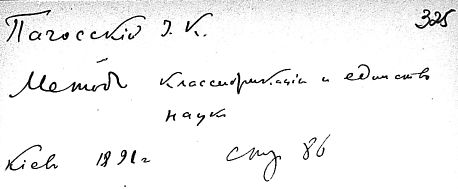 325
Пачосскій І. К.
Методъ классификаціи и единство
наукъ
Кіевъ 1891 г. стр 86